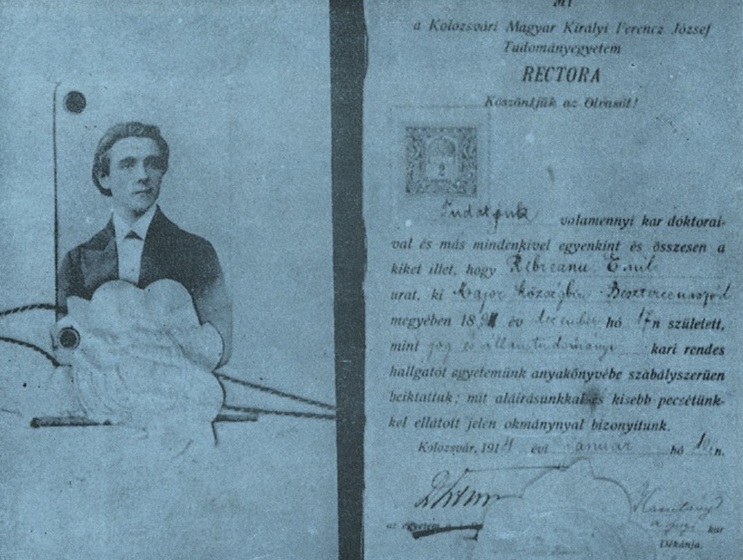 MI
a Kolozsvári Magyar Királyi Ferencz József
Tudományegyetem
RECTORA
Köszöntjük az Olvasót!
2
Tudatjuk valamennyi kar doktorai-
val és más mindenkivel egyenkint és összesen a
kiket illet, hogy Rebreanu Emil
urat, ki Major községben Besztercenaszód
megyében 1891 év december hó 17n született,
mint jog és államtudományi kari rendes
hallgatót egyetemünk anyakönyvébe szabályszerüen
beiktattuk; mit aláirásunkkal és kisebb pecsétünk-
kel ellátott jelen okmánynyal bizonyitunk.
Kolozsvár, 1914 évi január hó 10n.
az egyetem
a jogi kar
Dékánja.